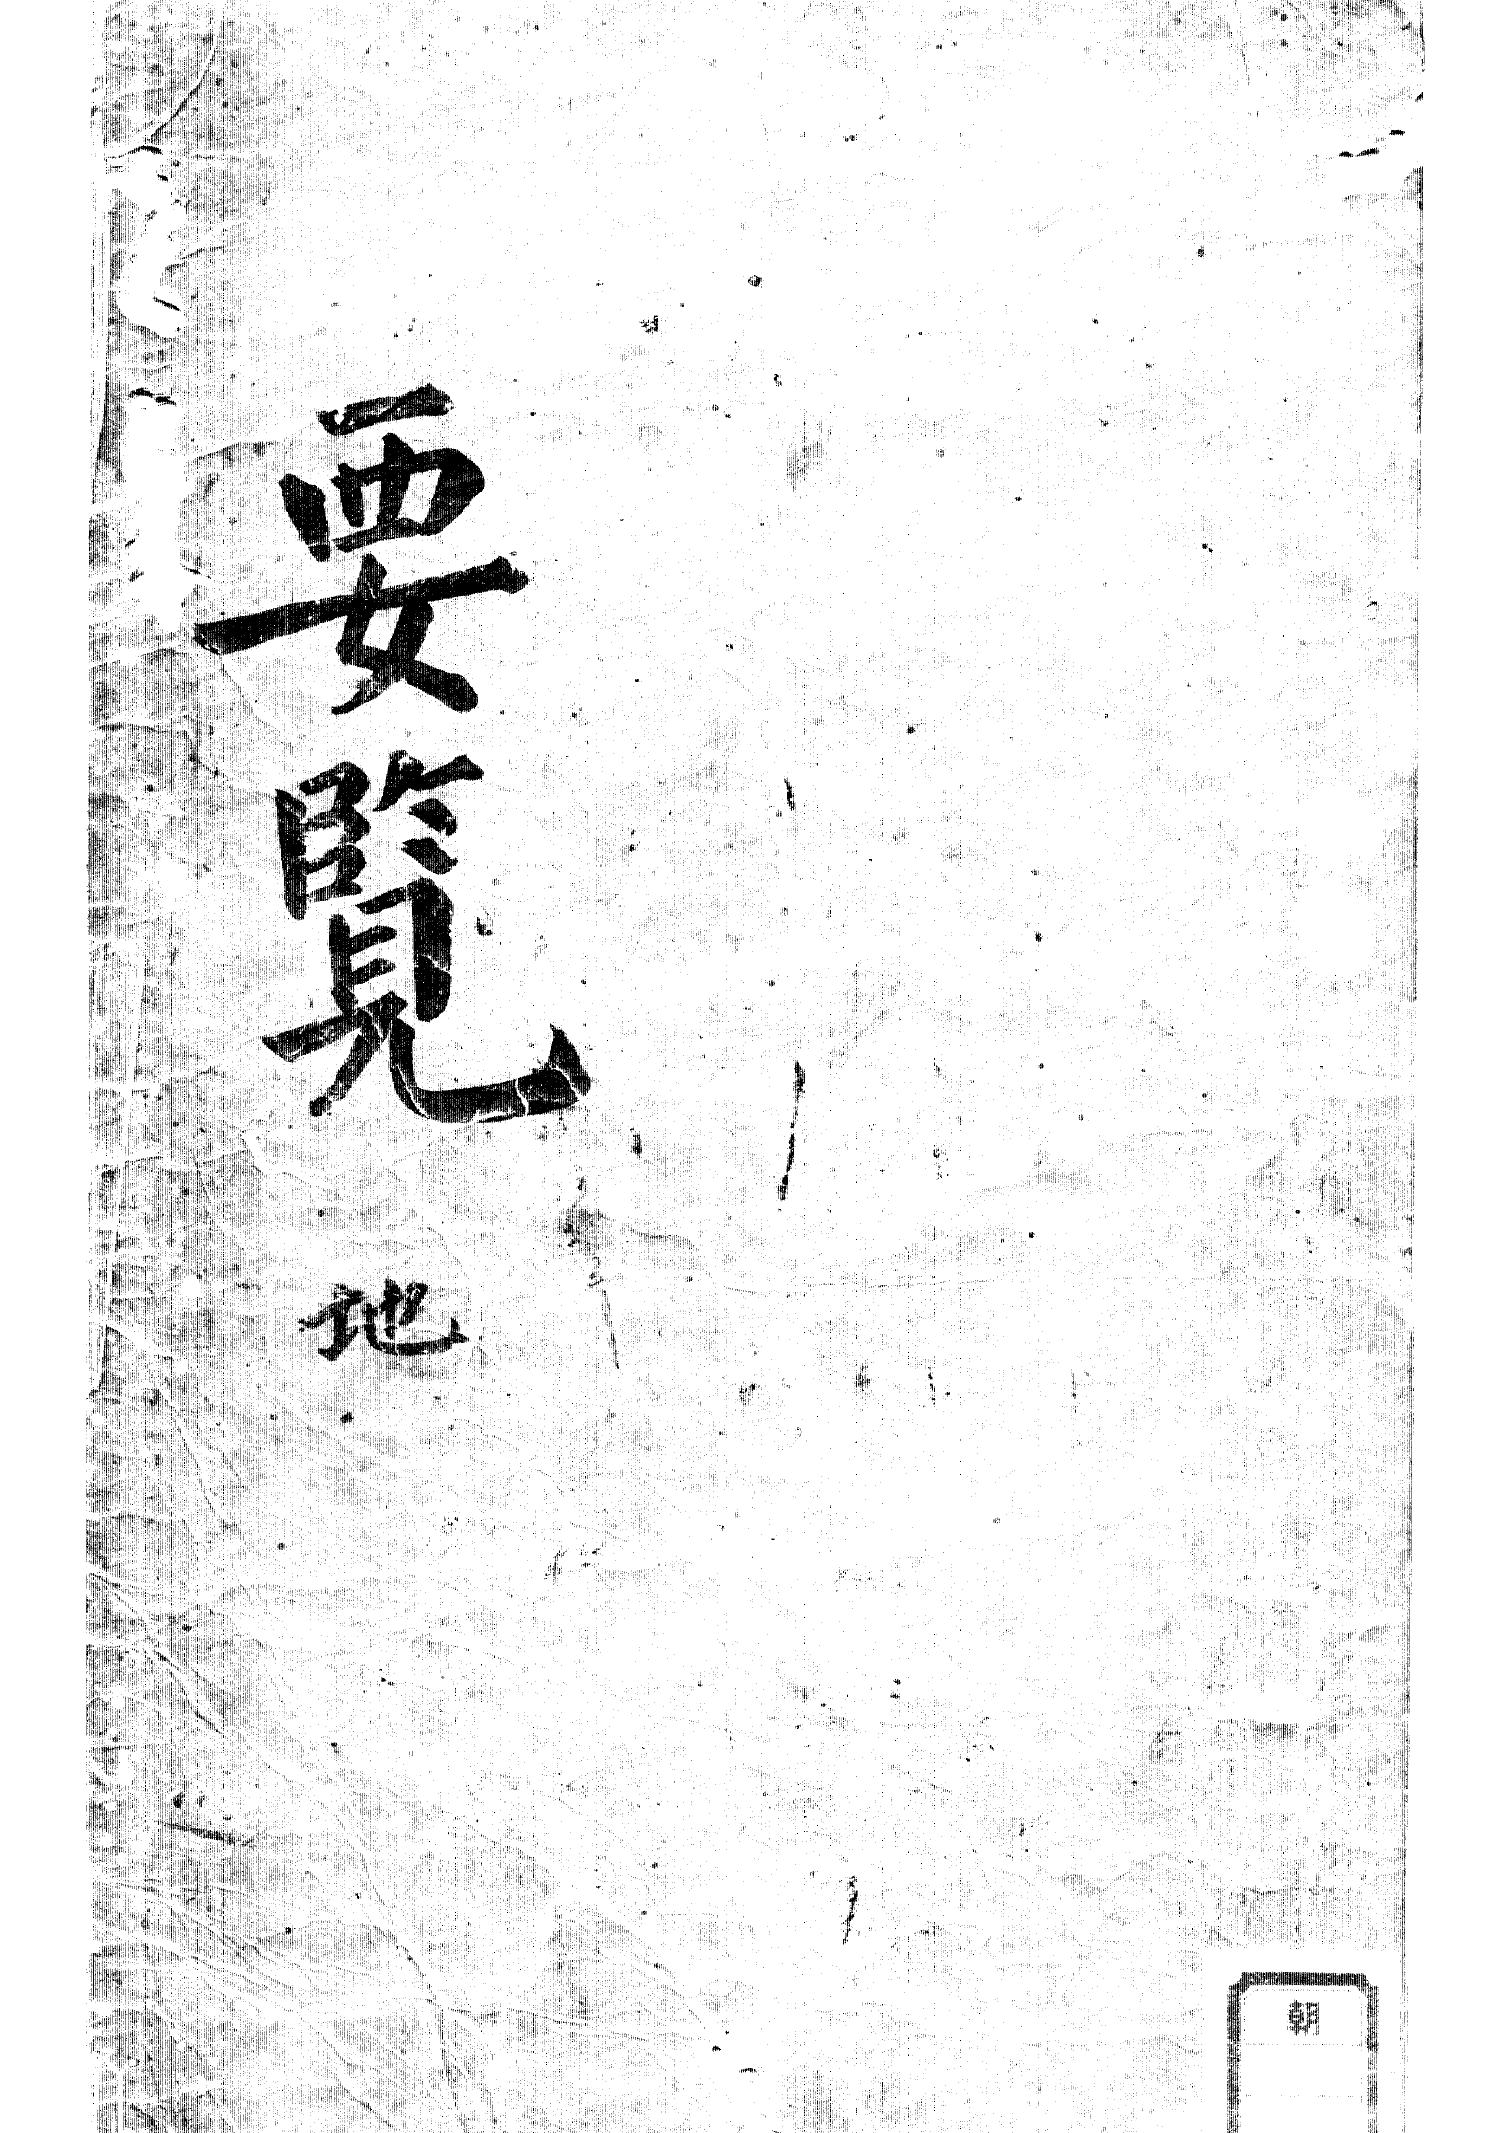 要覽
地
朝